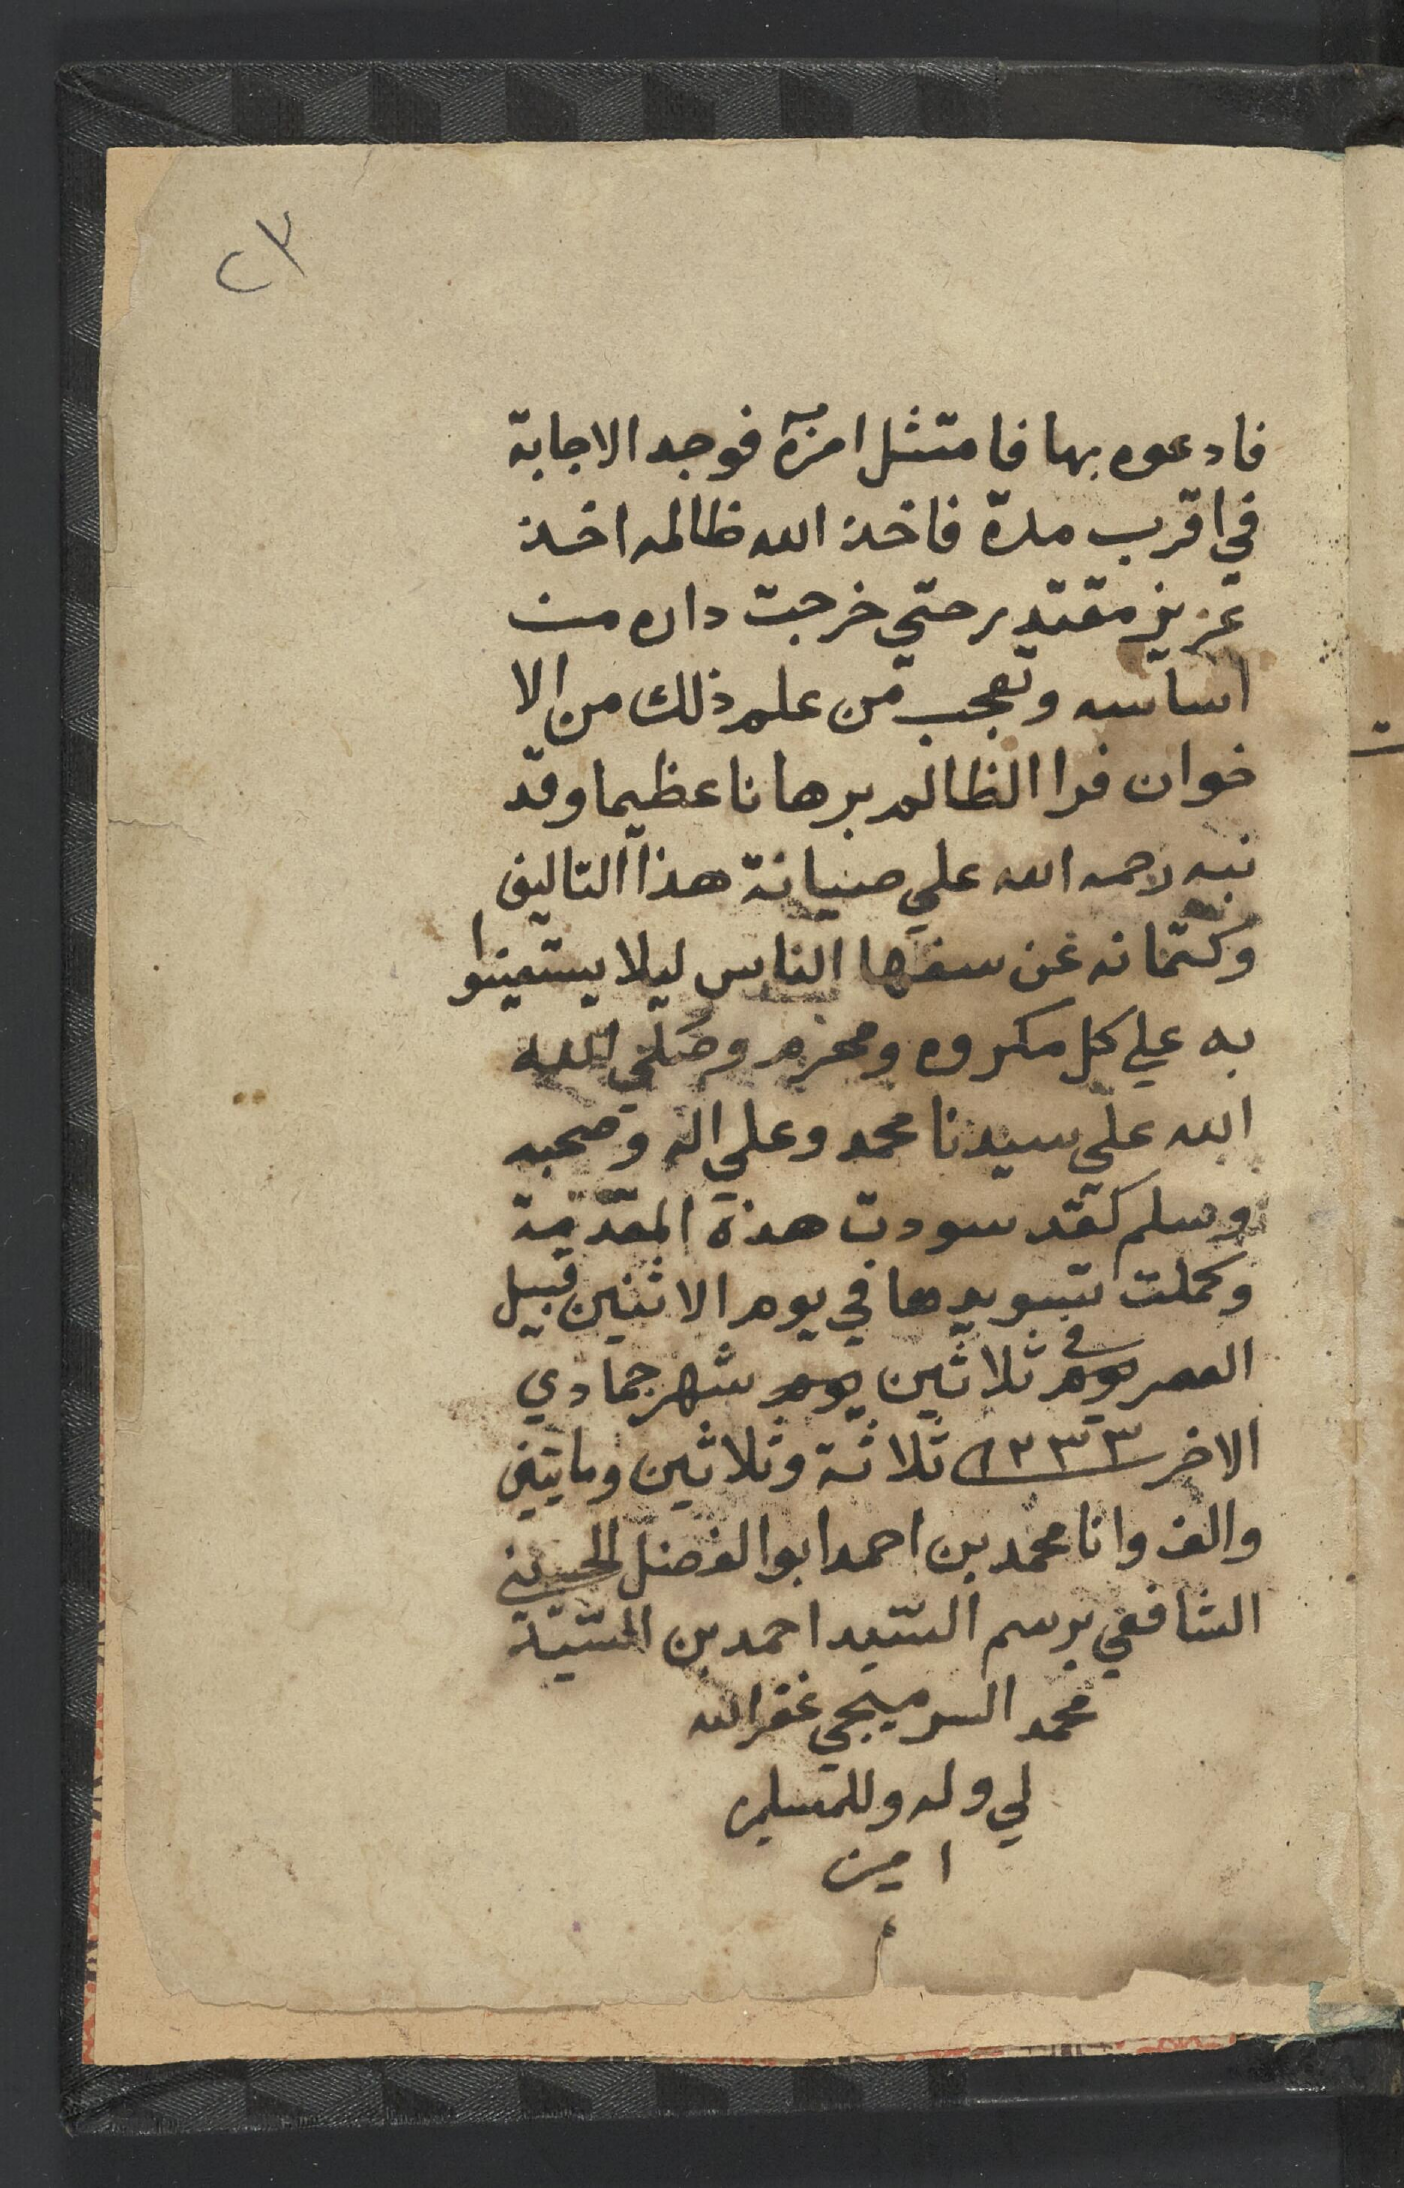 ٢٣
فادعوه بها فامتثل امره فوجد الاجابة
في اقرب مدة فاخذ الله ظالمه اخذ
عزيز مقتدر حتي خرجت داره من
اساسه وتعجب من علم ذلك من الا
خوان فرا الظالم برهانا عظيما وقد
نبه رحمه الله علي صيانة هذا التاليف
وكتمانه عن سفها الناس ليلا يستعينوا
به علي كل مكروه ومحرم وصلي الله
الله علي سيدنا محمد وعلي اله وصحبه
وسلم كقد سودت هذه المقدمة
وكملت تسويدها في يوم الاثنين قبيل
العصر يوم في ثلاثين يوم شهر جمادي
الاخر ١٢٣٣ ثلاثة وثلاثين ومايتين
والف وانا محمد بن احمد ابو الفضل الحسيني
الشافعي برسم السيد احمد بن السيد
محمد السرميجي غفر الله
لي وله وللمسلمين
امين
م